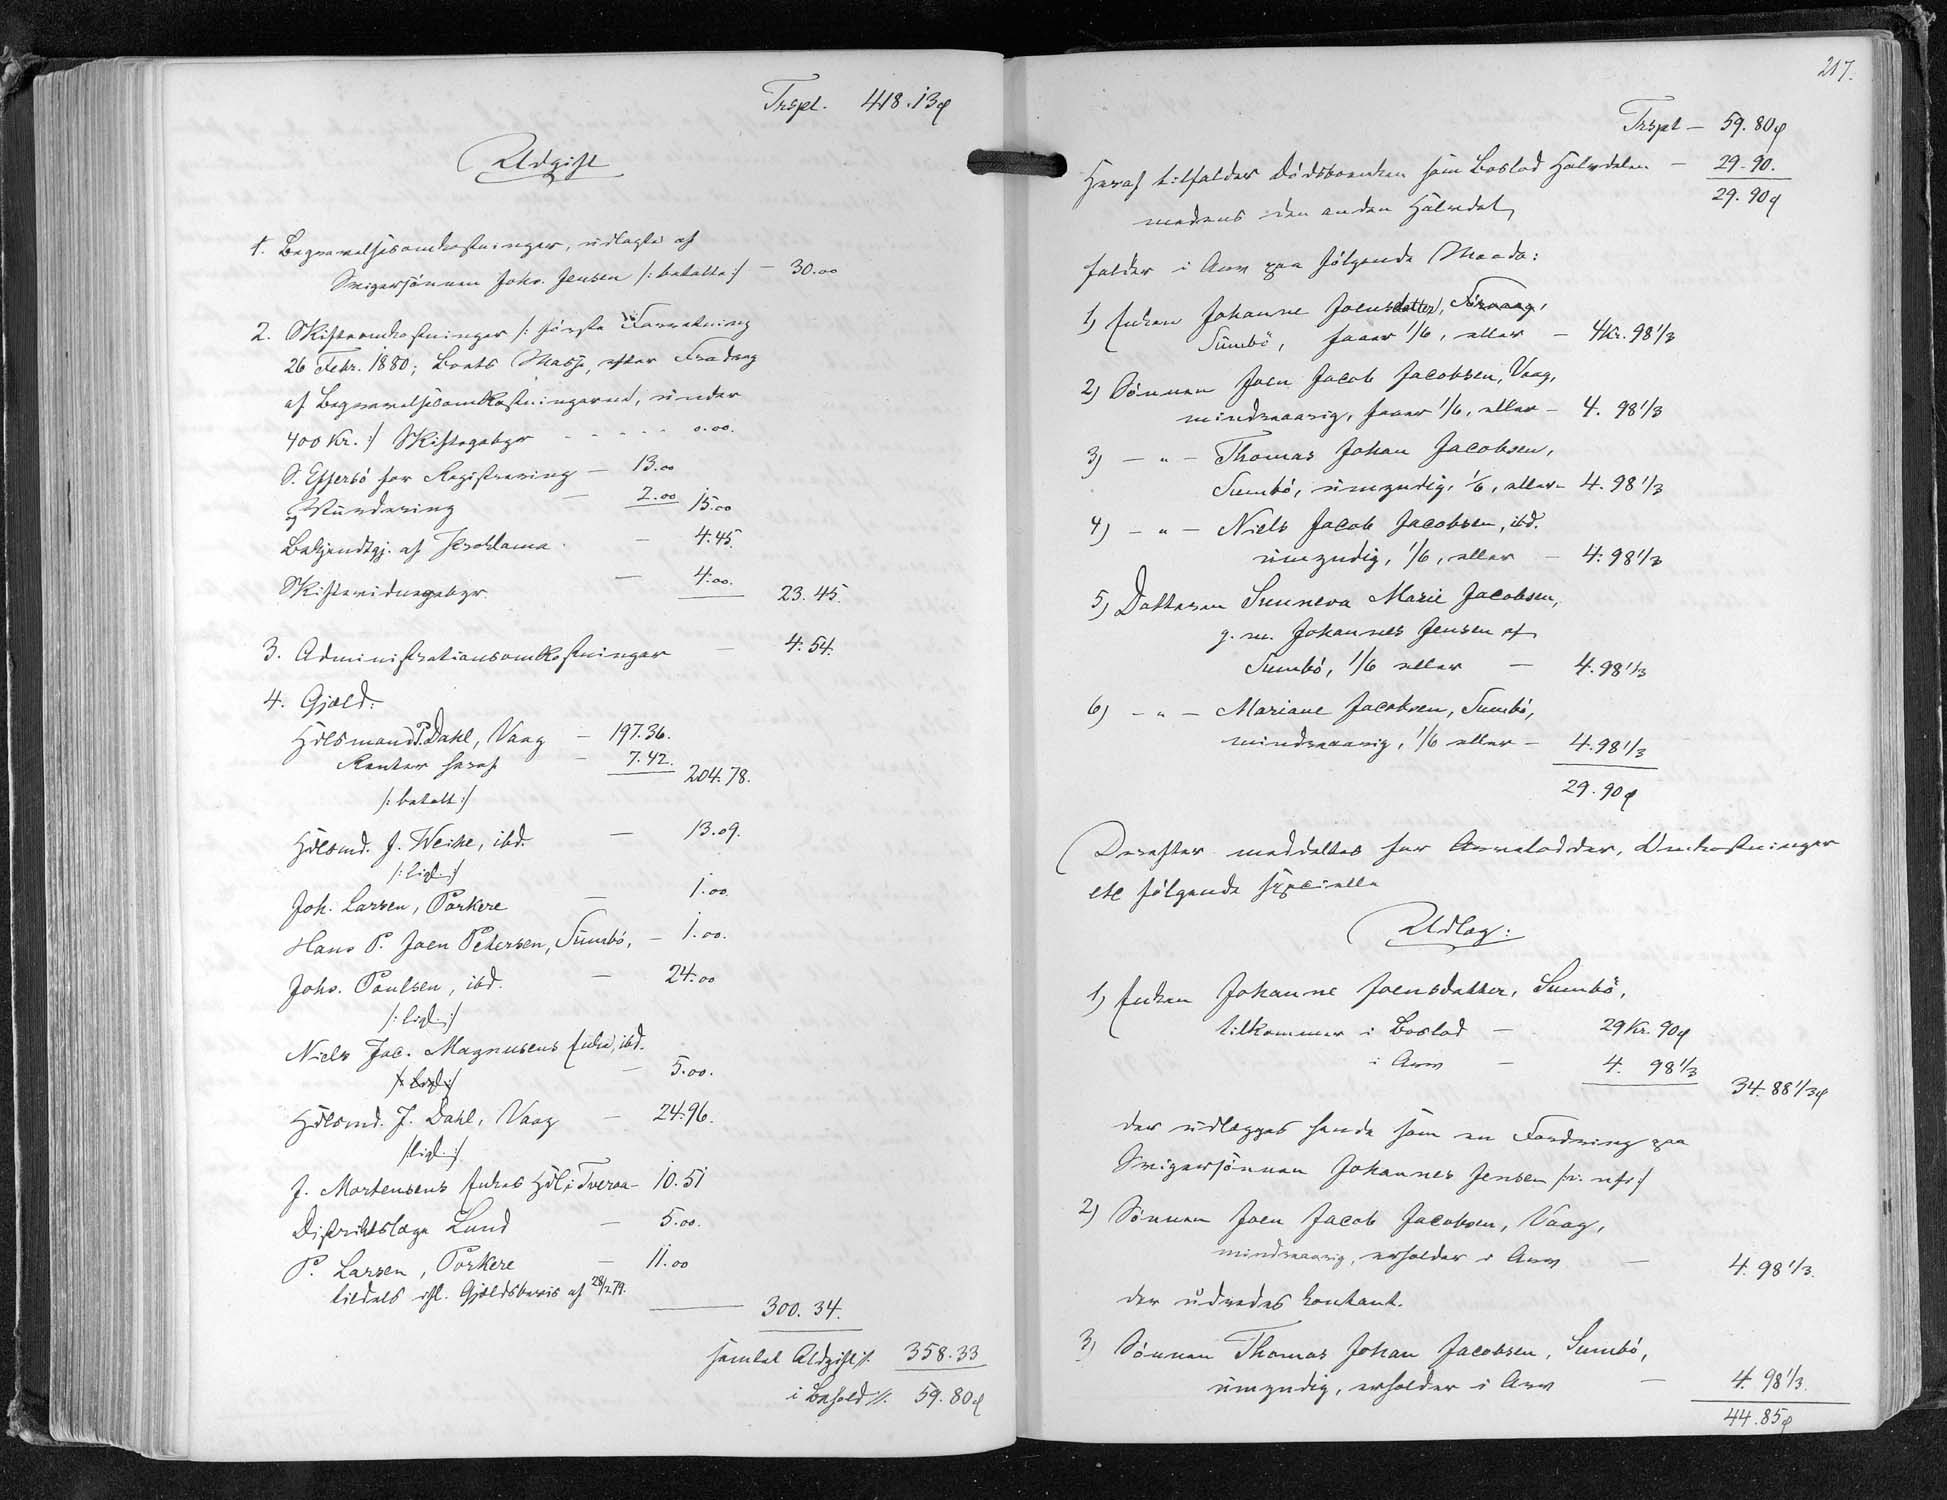 Trspt. 418.13 ø
Udgift
1. Begravelsesomkostninger, udlagte af
Svigersönnen Johs. Jensen /: betalte :/ — 30.00
2. Skifteomkostninger /: förste Forretning
26 Febr. 1880; Boets Masse, efter Fradrag
af Begravelsesomkostningerne, under
400 Kr. :/ Skiftegebyr - - - - 0.00.
S. Effersö for Registrering — 13.00
og Vurdering — 2.00 15.00
Bekjendtgj. af Proklama — 4.45.
Skiftevidnegebyr — 4.00. 23.45.
3. Administrationsomkostninger — 4.54.
4. Gjæld:
Hdlsmand P. Dahl, Vaag — 197.36.
Renter heraf — 7.42. 204.78.
/: betalt :/
Hdlsmd. J. Weihe, ibd. — 13.09.
/: ligel. :/
Joh. Larsen, Porkere — 1.00.
Hans P. Joen Petersen, Sumbö, — 1.00.
Johs. Poulsen, ibd. — 24.00
/: ligel. :/
Niels Jac. Magnusens Enke, ibd. — 5.00.
Hdlsmd. J. Dahl, Vaag — 24.96.
/: ligel. :/
J. Mortensens Enkes Hdl. i Tveraa — 10.51
Distriktslæge Lund — 5.00.
P. Larsen, Porkere — 11.00
tildels ifl. Gjældsbevis af 28/2 79.
— 300.34.
samlet Udgift ./. 358.33
i Behold ./. 59.80 ø
217.
Trspt — 59.80 ø
Heraf tilfalder Dödsboenken som Boslod Halvdelen — 29.90.
medens den anden Halvdel 29.90 ø
falder i Arv paa fölgende Maade:
1) Enken Johanne Joensdatter,
Sumbö, faaer 1/6, eller — 4 Kr. 98 1/3
2) Sönnen Joen Jacob Jacobsen, Vaag,
mindreaarig, faaer 1/6, eller — 4. 98 1/3
3) — " — Thomas Johan Jacobsen,
Sumbö, umyndig, 1/6, eller — 4. 98 1/3
4) — " — Niels Jacob Jacobsen, ibd.
umyndig, 1/6, eller — 4. 98 1/3
5) Datteren Sunneva Marie Jacobsen,
g. m. Johannes Jensen af
Sumbö, 1/6 eller — 4. 98 1/3
6) — " — Mariane Jacobsen, Sumbö,
mindreaarig, 1/6 eller — 4. 98 1/3
29.90 ø
Derefter meddeltes for Arvelodder, Omkostninger
etc fölgende specielle
Udlæg:
1) Enken Johanne Joensdatter, Sumbö,
tilkommer i Boslod — 29 Kr. 90 ø
i Arv — 4. 98 1/3 34.88 1/3 ø
der udlægges hende som en Fordring paa
Svigersönnen Johannes Jensen
2) Sönnen Joen Jacob Jacobsen, Vaag,
mindreaarig, erholder i Arv — 4. 98 1/3.
der udredes kontant.
3) Sönnen Thomas Johan Jacobsen, Sumbö,
umyndig, erholder i Arv — 4. 98 1/3.
44.85 ø